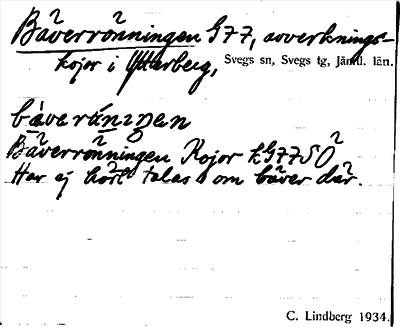 Bäverrönningen G77, avverknings-
kojor i Ytterberg, Svegs sn, Svegs tg, Jämtl. län.
bäveränıŋen
Bäverrönningen Kojor hG77SÖ
Har ej hört talas om bäver där.
C. Lindberg 1934.